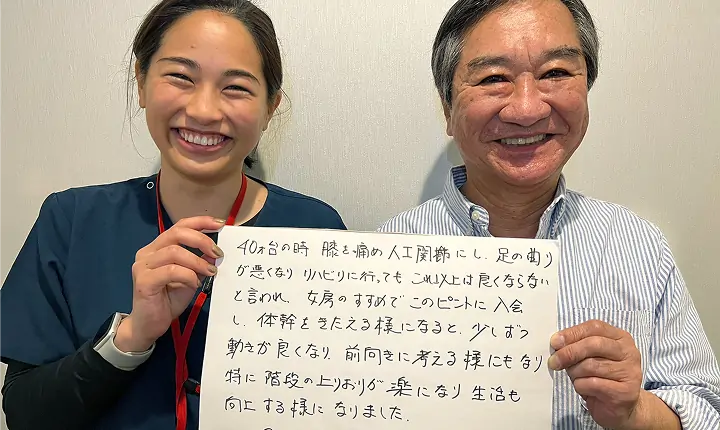 40才台の時 膝を痛め人工関節にし、足の曲り
が悪くなり リハビリに行っても これ以上は良くならない
と言われ、女房のすすめで このピントに 入会
し、体幹をきたえる様になると、少しずつ
動きが良くなり、前向きに考える様にもなり
特に 階段の上りおりが 楽になり 生活も
向上する様に なりました.